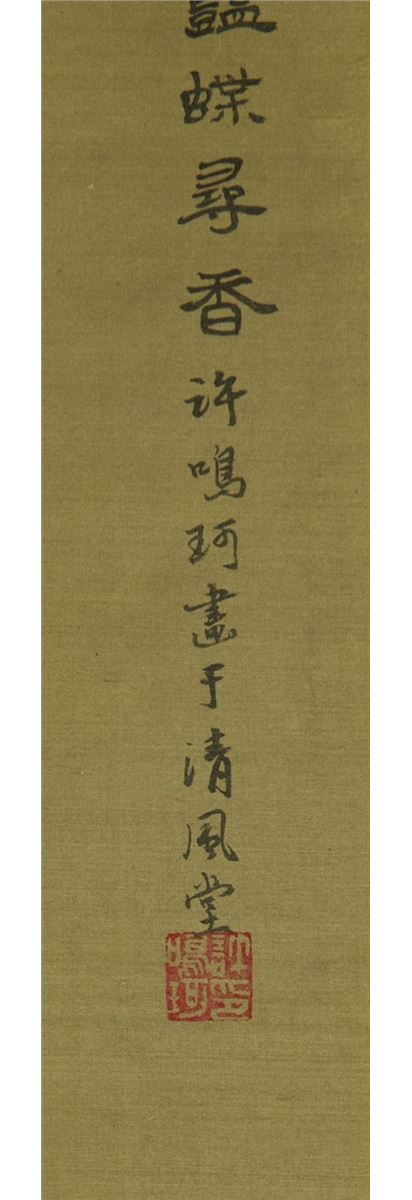 蝶尋香許鳴珂畫于清風堂
許鳴珂印